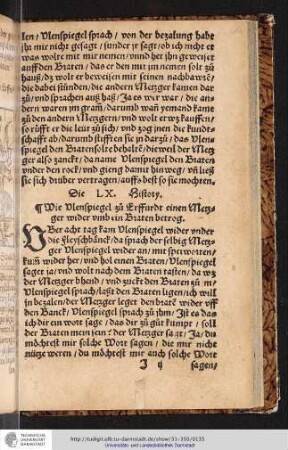 len / Vlenspiegel sprach / von der bezalung habt
ihr mir nicht gesagt / sunder jr sagt / ob ich nicht et
was wolte mit mir nemen / vnnd het ihn geweiset
auff den Braten / das er den mit im nemen solt zů
hauß / dz wolt er beweisen mit seinen nachbawrē /
die dabei stůnden / die andern Metzger kamen dar
zů / vnd sprachen auß haß / Ja es wir war / die an-
dern waren im gram / darumb wañ yemand kame
zů den andern Metzgern / vnd wolt etwz kauffen /
so růfft er die leut zů sich / vnd zog jnen die kundt-
schafft ab / darumb stifften sie jn darzů / das Vlen
spiegel den Braten solt behaltē / die weil der Metz
ger also zanckt / da name Vlenspiegel den Braten
vnder den rock / vnd gieng damit hin weg / vñ ließ
sie sich drüber vertragen / auffs best so sie mochten.
Die LX. History.
¶ Wie Vlenspiegel zů Erffurdt einen Metz-
ger wider vmb ein Braten betrog.
VBer acht tag kam Vlenspiegel wider vnder
die fleyschbänck / da sprach der selbig Metz-
ger Vlenspiegel wider an / mit speyworten /
kum̃ wider her / vnd hol einen Braten / Vlenspiegel
saget ja / vnd wolt nach dem Braten tasten / da wz
der Metzger bhend / vnd zuckt den Braten zů im /
Vlenspiegel sprach / laßt den Braten ligen / ich will
jn bezalen / der Metzger leget den bratē wider vff
den Banck / Vlenspiegel sprach zů jhm / Ist es das
ich dir ein wort sage / das dir zů gůt kumpt / soll
der Braten mein sein? der Metzger sagt / Ja / du
möchtest mir solche Wort sagen / die mir nicht
nütze weren / du möchtest mir auch solche Wort
J ij sagen /
TECHNISCHE
UNIVERSITÄT
DARMSTADT
http://tudigit.ulb.tu-darmstadt.de/show/31-350/0135
Universitäts- und Landesbibliothek Darmstadt